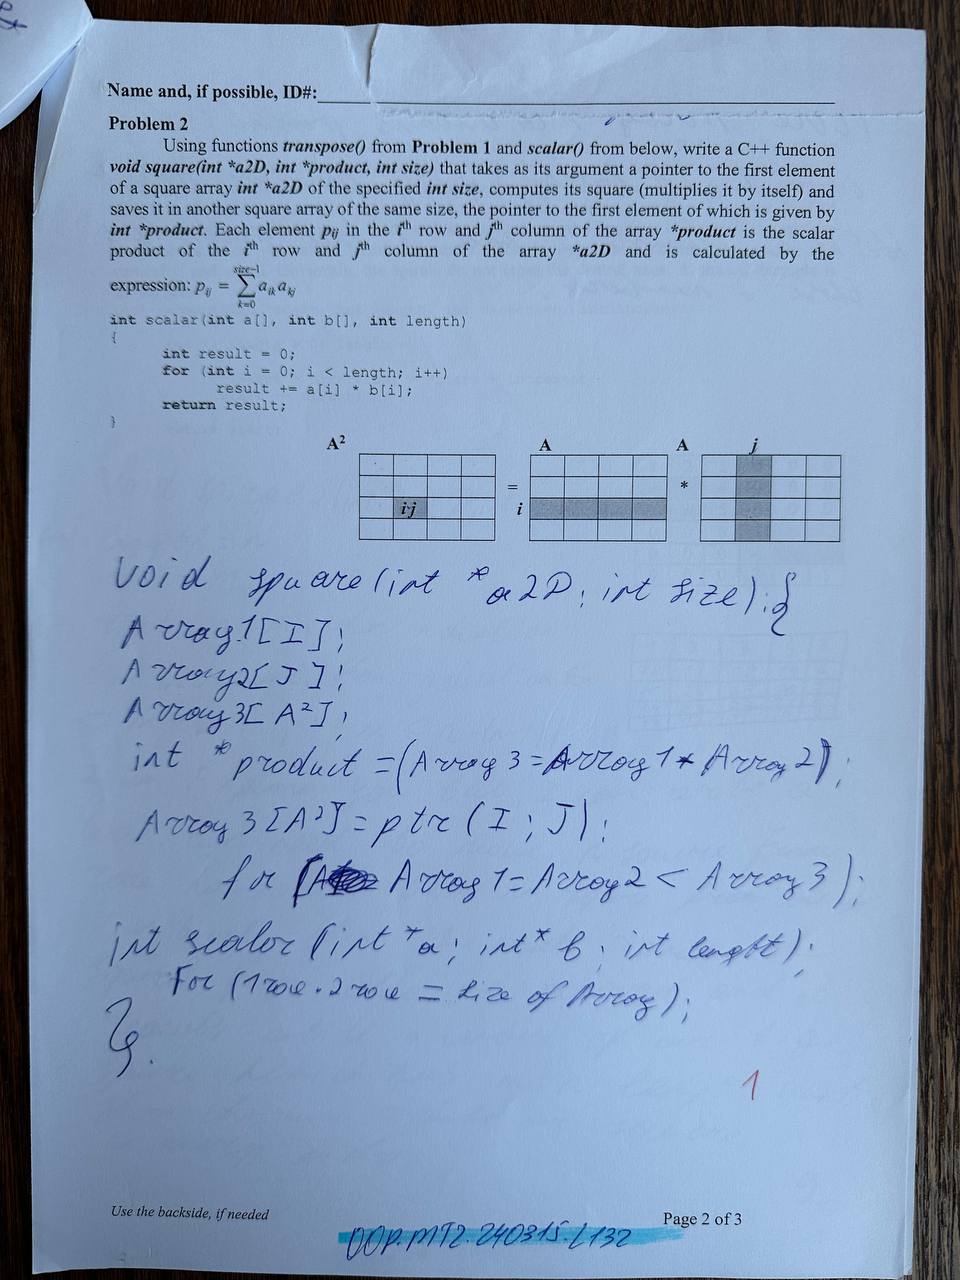 Name and, if possible, ID#:
Problem 2
Using functions transpose() from Problem 1 and scalar() from below, write a C++ function
void square(int *a2D, int *product, int size) that takes as its argument a pointer to the first element
of a square array int *a2D of the specified int size, computes its square (multiplies it by itself) and
saves it in another square array of the same size, the pointer to the first element of which is given by
int *product. Each element pij in the ith row and jth column of the array *product is the scalar
product of the ith row and jth column of the array *a2D and is calculated by the
expression: pij = ∑ aik akj
size−1
k=0
int scalar(int a[], int b[], int length)
{
int result = 0;
for (int i = 0; i < length; i++)
result += a[i] * b[i];
return result;
}
A² A A j
= *
ij i
void square(int *a2D; int size);{
Array1[I];
Array2[J];
Array3[A²];
int *product =(Array3=Array1*Array2);
Array3[A²]=ptr(I; J);
for (Array1=Array2 < Array3);
int scalor (int *a; int* b; int lenght);
For (1row.2row = size of Array);
}.
1
Use the backside, if needed
Page 2 of 3
OOP.MT2.240315.L132